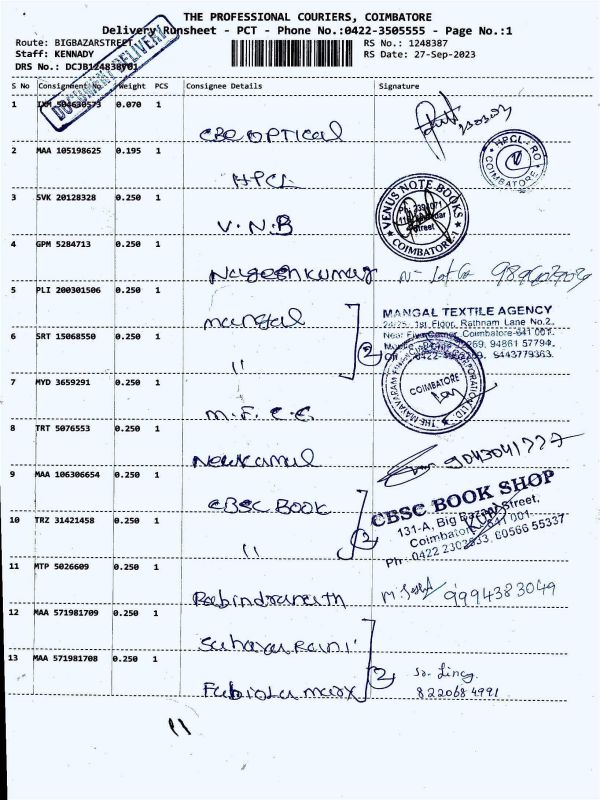 THE PROFESSIONAL COURIERS, COIMBATORE
Delivery Runsheet - PCT - Phone No.:0422-3505555 - Page No.:1
Route: BIGBAZARSTREET
RS No.: 1248387
Staff: KENNADY
RS Date: 27-Sep-2023
DRS No.:
DOCUMENT DELIVERY
S No Consignment No. Weight PCS Consignee Details Signature
1 0.070 1
CBE OPTICAL
2 MAA 105198625 0.195 1
HPCL
HPCL-RO
COIMBATORE
3 SVK 20128328 0.250 1
V.N.B
VENUS NOTE BOOKS
Street
COIMBATORE-1
4 GPM 5284713 0.250 1
Nageshkumar
5 PLI 200301506 0.250 1
mangal
MANGAL TEXTILE AGENCY
1st Floor, Rathnam Lane No.2,
Coimbatore-641 001.
94861 57794,
9443779363.
6 SRT 15068550 0.250 1
"
2
7 MYD 3659291 0.250 1
M.F.C.C
COIMBATORE
8 TRT 5076553 0.250 1
Newkamal
9043041777
9 MAA 106306654 0.250 1
CBSC BOOK
CBSC BOOK SHOP
131-A, Big Bazaar Street,
Coimbatore 641 001
Ph: 0422 55337
10 TRZ 31421458 0.250 1
"
2
11 MTP 5026609 0.250 1
Rabindranath
9994383049
12 MAA 571981709 0.250 1
Sahayarani
13 MAA 571981708 0.250 1
Fabiola marx
2
8220684991
11